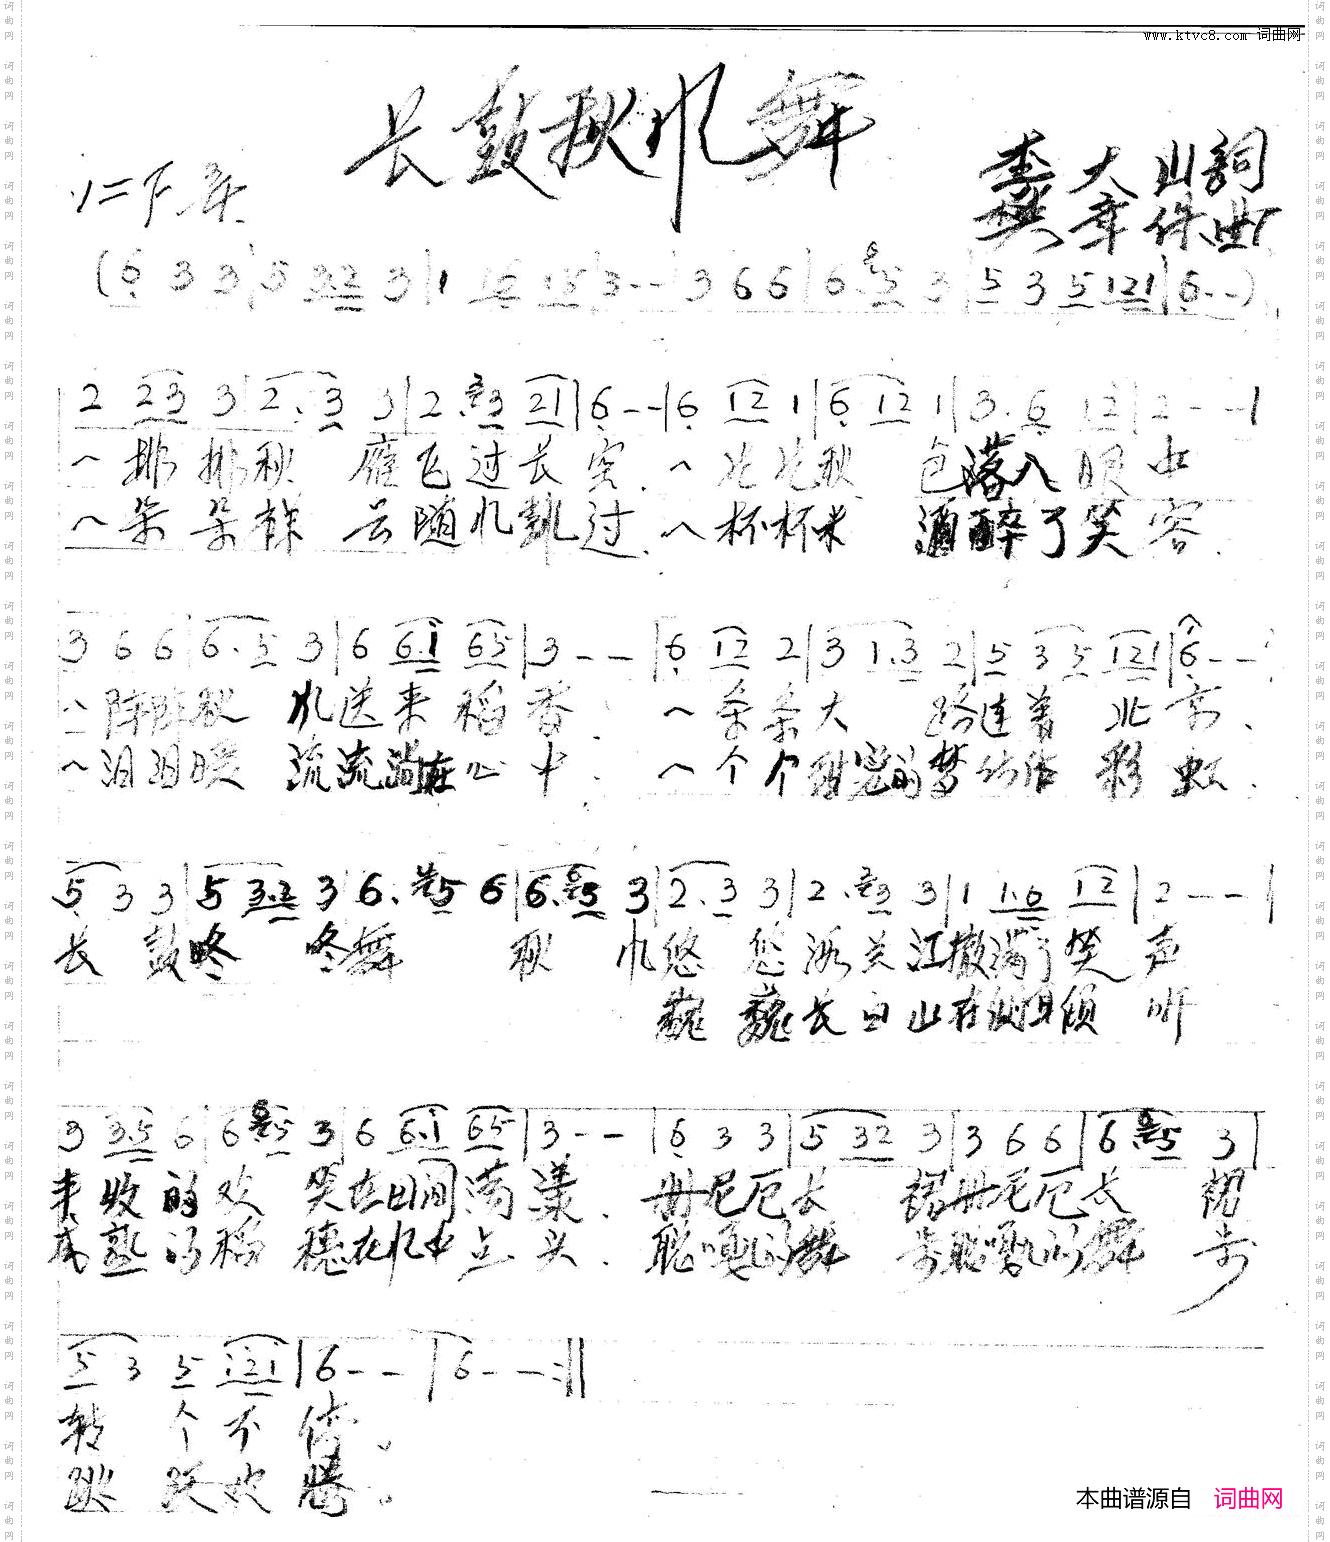 www.ktvc8.com 词曲网
长鼓秋风舞
大山詞
樊章侏曲
(6 3 3|5 3.2 3|1 16 15|3--|3 6 6|6. 5 3|5 3 5 121|6--)
2 23 3|2. 3 3|2. 3 21|6--|6 12 1|6 12 1|3. 6 12|2--|
一排排秋 雁飞过长空.一片片秋 色落入眼中
一朵朵祥 云随风飘过.一杯杯米 酒醉了笑容.
3 6 6|6. 5 3|6 6.1 65|3--|6 12 2|3 1.3 2|5 3 5 121|6--
一阵阵秋 风送来稻香. 一条条大 路连着 北京.
一汩汩暖 流流淌在心中. 一个个甜蜜的梦 彩虹.
5 3 3|5 3.2 3|6. 5 6|6. 5 3|2. 3 3|2. 3 3|1 1.6 12|2--|
长 鼓咚 咚舞 秋 巾悠 悠 海兰江撒满了笑 声
巍 巍长白山在侧耳倾 听
3 3.5 6|6 5 3|6 6.1 65|3--|6 3 3|5 32 3|3 6 6|6 5 3|
丰收的欢 笑在田间荡漾. 长 裙 长 裙
成熟的稻 穗在风中点头. 的舞 步 的舞 步
5 3 5 121|6--|6--:||
转 个不停.
跳 跃欢腾.
本曲谱源自 词曲网